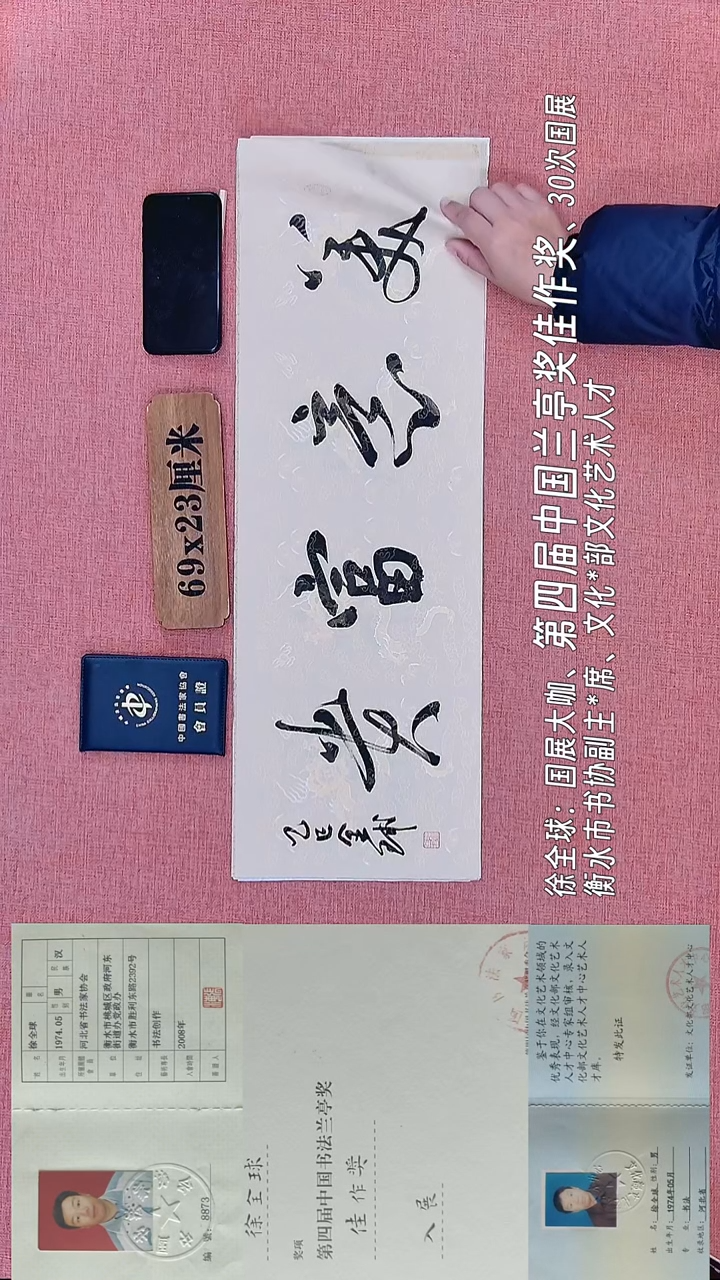 徐全球：国展大咖、第四届中国兰亭奖佳作奖、30次国展
衡水市书协副主*席、文化*部文化艺术人才
69x23厘米
中國書法家協會
會員證
乙巳全球
姓名 徐全球
出生年月 1974.05 性别 男 民族 汉
河北省书法家协会
衡水市桃城区政府河东
街道办党政办
衡水市胜利东路2392号
书法创作
2008年
编号：8873
徐全球
奖项
第四届中国书法兰亭奖
佳作奖
入展
鉴于你在文化艺术领域的
优秀表现，经文化部文化艺术
人才中心专家组审核，录入文
化部文化艺术人才中心艺术人
才库。
特发此证
发证单位：文化部文化艺术人才中心
姓名：徐全球 性别：男
出生年月：1974年05月
专业：书法
收录地区：河北省